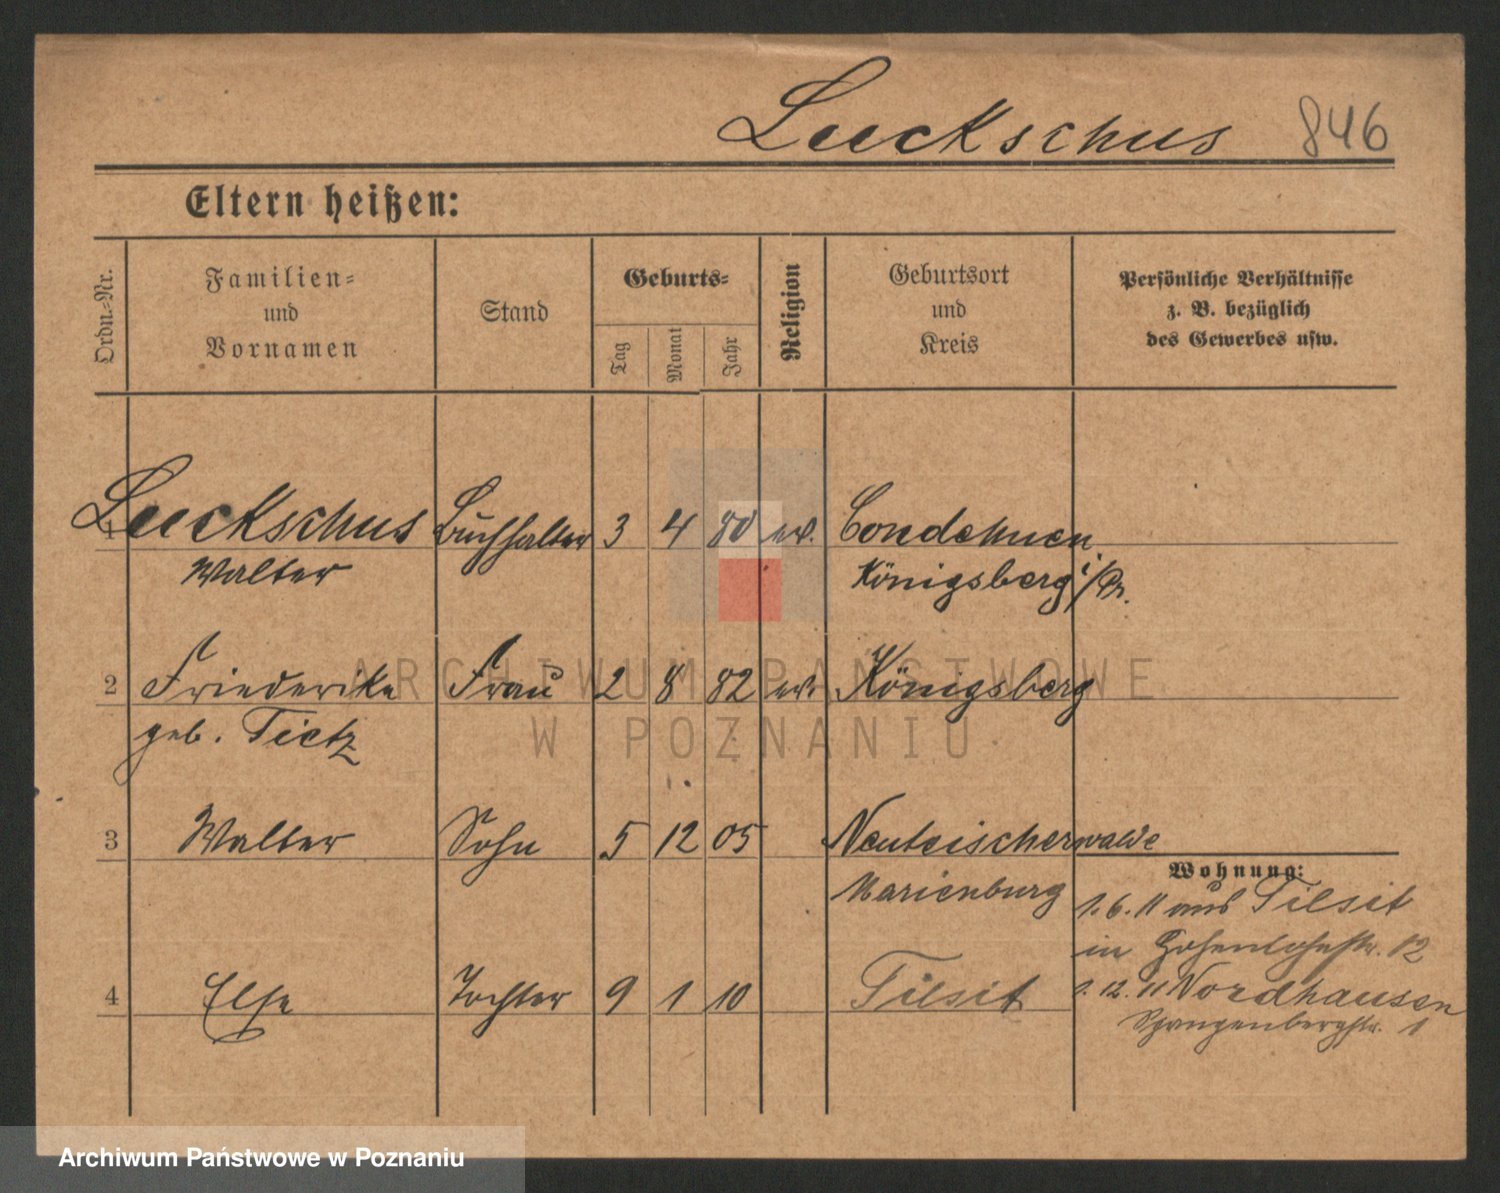 Lueckschus 846
Eltern heißen:
Ordn.-Nr.
Familien-
und
Vornamen
Stand
Geburts-
Tag
Monat
Jahr
Religion
Geburtsort
und
Kreis
Persönliche Verhältnisse
z. B. bezüglich
des Gewerbes usw.
1 Lueckschus Buchhalter 3 4 80 ev. Condehnen
Walter Königsberg i/Pr.
2 Friederike Frau 2 8 82 ev. Königsberg
geb. Tietz
3 Walter Sohn 5 12 05 Neuteicherwalde
Marienburg
Wohnung:
1.6.11 aus Tilsit
in Hohenlohestr. 12
4 Else Tochter 9 1 10 Tilsit
1.12.11 Nordhausen
Spangenbergstr. 1
ARCHIWUM PAŃSTWOWE
W POZNANIU
Archiwum Państwowe w Poznaniu